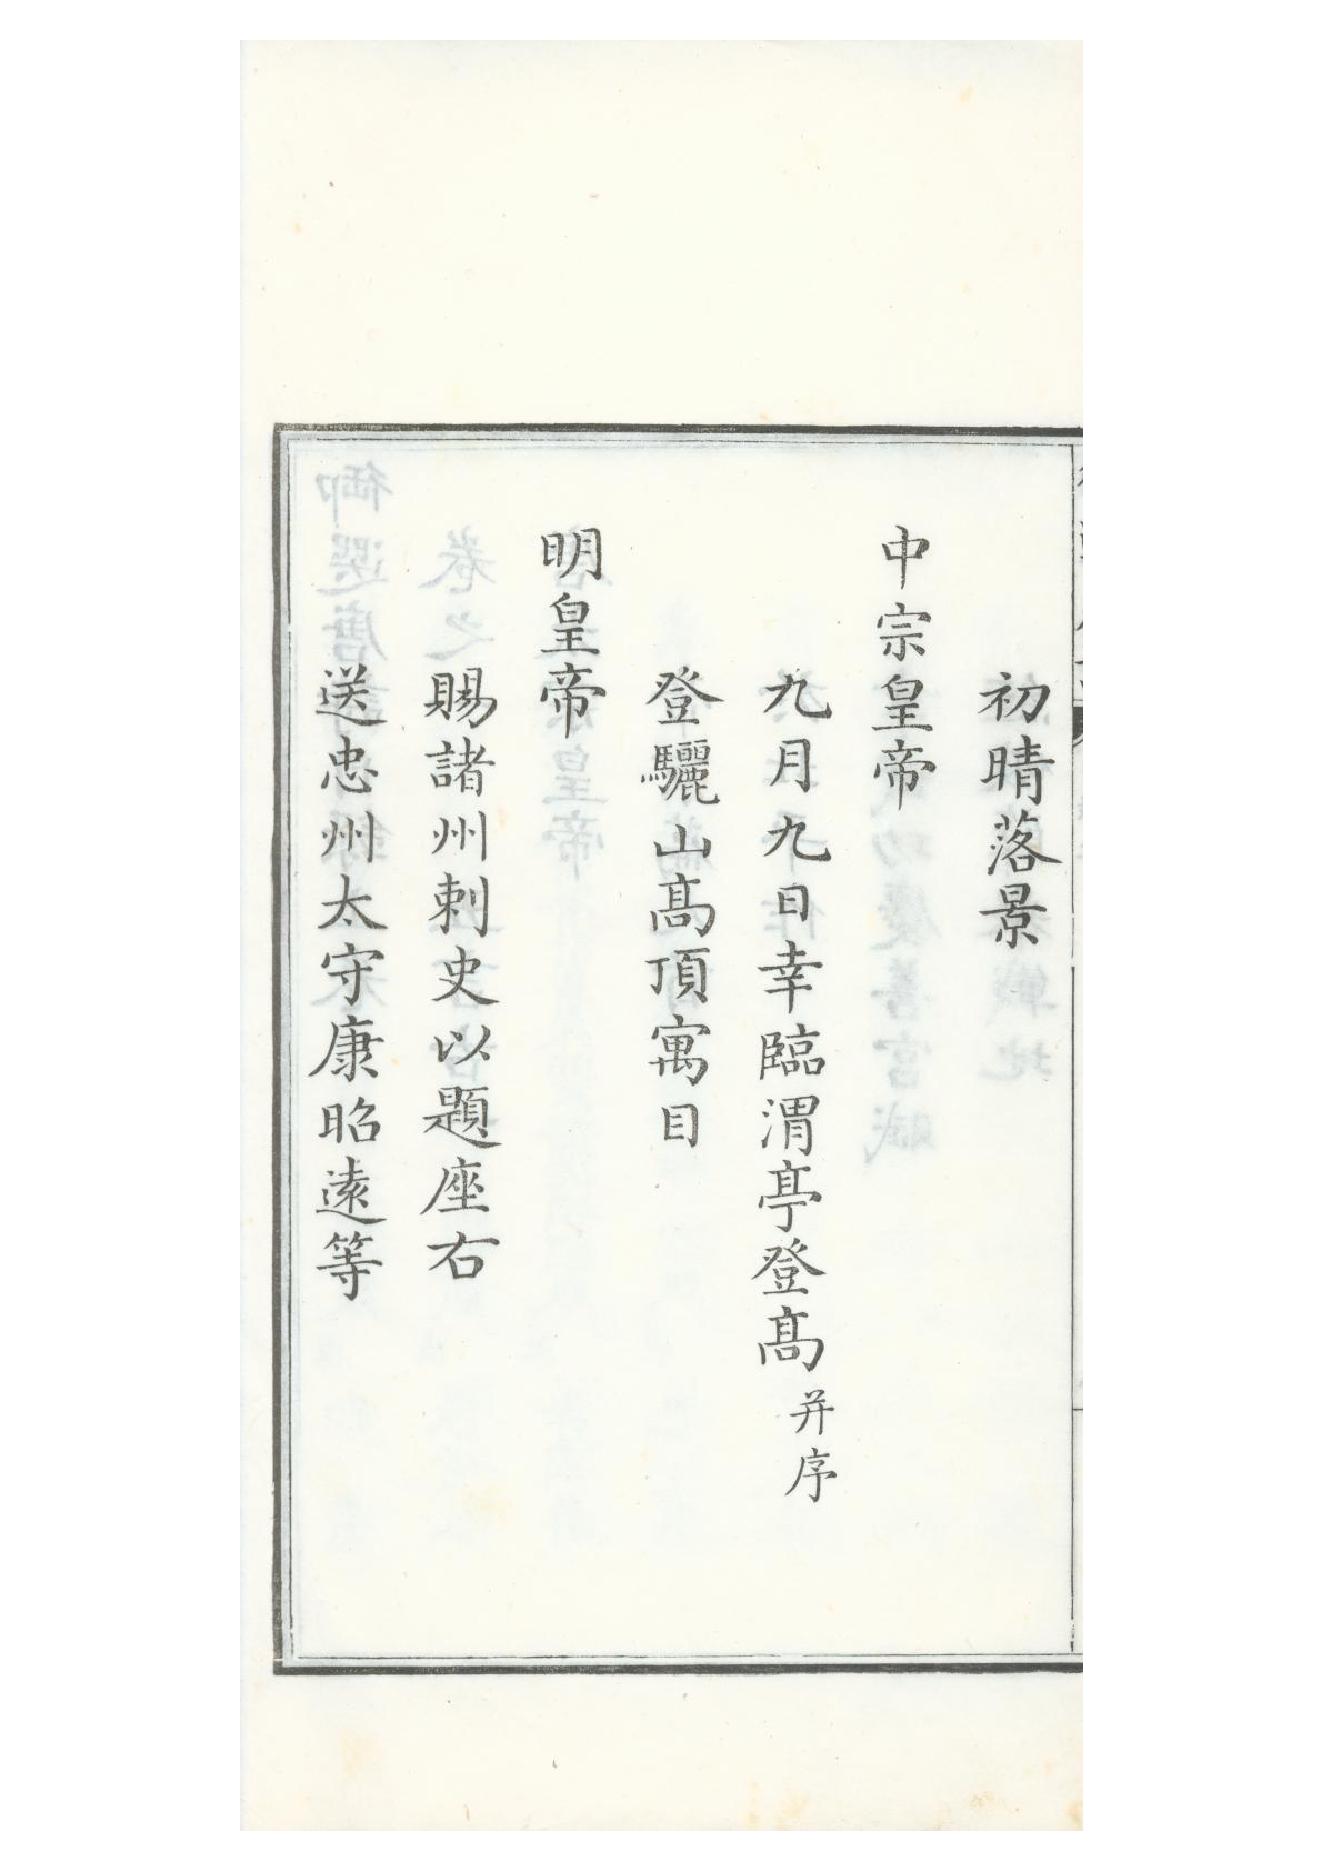 初晴落景
中宗皇帝
九月九日幸臨渭亭登髙并序
登驪山髙頂寓目
明皇帝
賜諸州刺史以題座右
送忠州太守康昭遠等